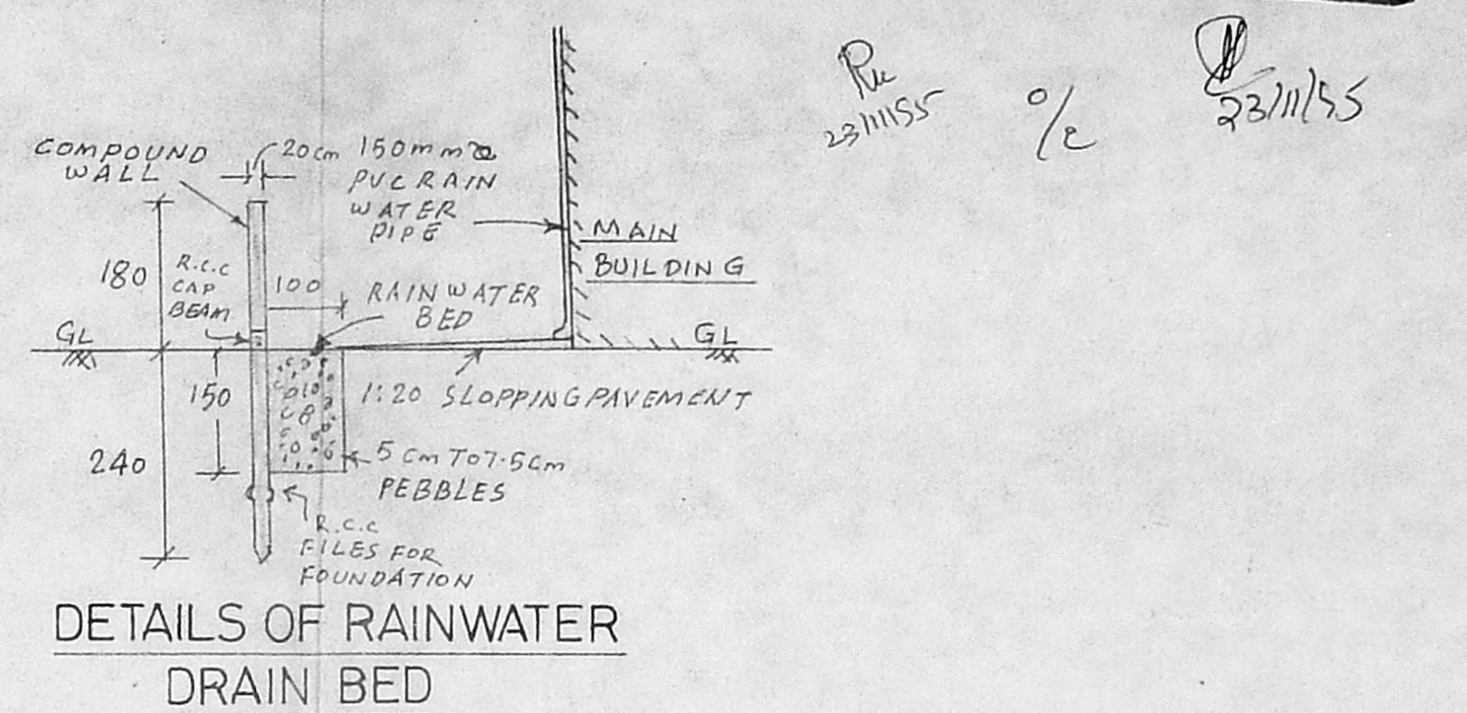 COMPOUND
WALL
20cm
150mmø
PVC RAIN
WATER
PIPE
MAIN
BUILDING
180
R.C.C
CAP
BEAM
100
RAINWATER
BED
GL
GL
150
1:20 SLOPPING PAVEMENT
240
5 cm TO 7.5 cm
PEBBLES
R.C.C
FILES FOR
FOUNDATION
DETAILS OF RAINWATER
DRAIN BED
23/11/55
23/11/55